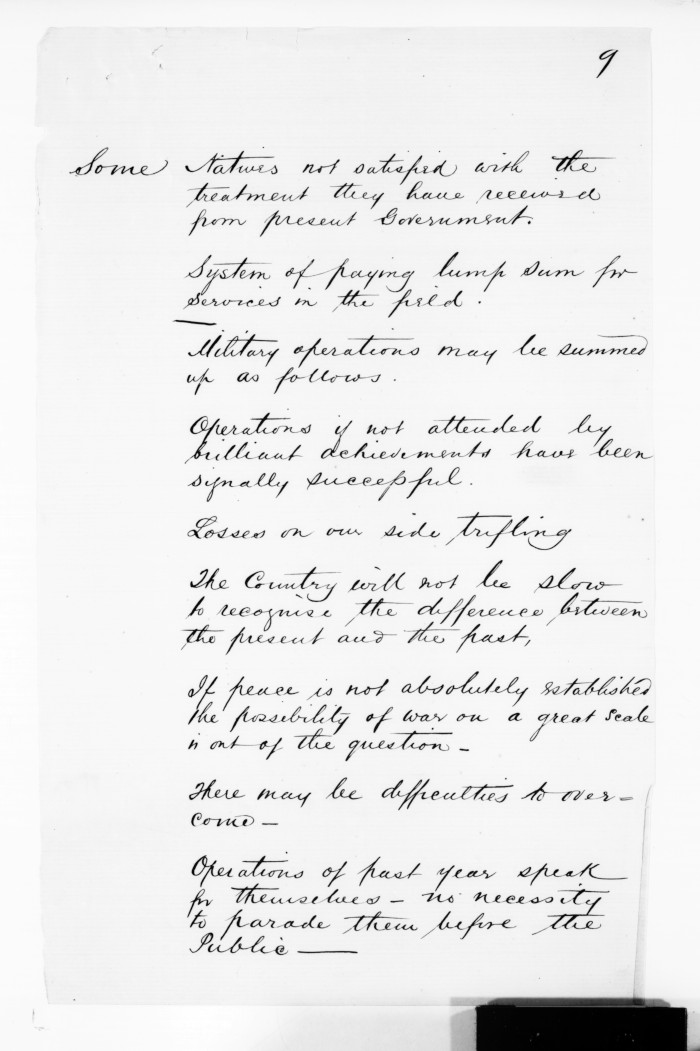 9
Some Natives not satisfied with the
treatment they have received
from present Government.
System of paying lump sum for
services in the field.
Military operations may be summed
up as follows.
Operations if not attended by
brilliant achievements have been
signally successful.
Losses on our side trifling
The Country will not be slow
to recognise the difference between
the present and the past,
If peace is not absolutely established
the possibility of war on a great scale
is out of the question –
There may be difficulties to over=
come –
Operations of past year speak
for themselves – no necessity
to parade them before the
Public —